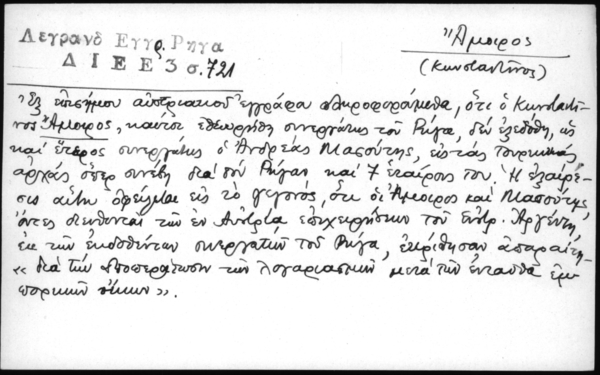 Λεγρανδ Εγγρ. Ρηγα
Δ Ι Ε Ε 3 σ. 721
Ἄμοιρος
(Κωνσταντῖνος)
Ἐξ ἐπισήμου αὐστριακοῦ ἐγγράφου πληροφορούμεθα, ὅτι ὁ Κωνσταντῖ-
νος Ἄμοιρος, καίτοι ἐθεωρήθη συνεργάτης τοῦ Ρήγα, δὲν ἐξεδόθη, ὡς
καί ἕτερος συνεργάτης ὁ Ἀνδρέας Μασούτης, εἰς τάς τουρκικάς
ἀρχάς ὅπερ συνέβη διά τόν Ρήγαν καί 7 ἑταίρους του. Ἡ ἐξαίρε-
σις αὕτη ὀφείλεται εἰς τό γεγονός, ὅτι οἱ Ἄμοιρος καί Μασούτης,
ὄντες διευθυνταί τῶν ἐν Αὐστρίᾳ ἐπιχειρήσεων τοῦ Εὐστρ. Ἀργέντη,
ἐκ τῶν ἐκδοθέντων συνεργατῶν τοῦ Ρήγα, ἐκρίθησαν ἀπαραίτη-
« διά τήν ἀποπεράτωσιν τῶν λογαριασμῶν μετά τῶν ἐνταῦθα ἐμ-
πορικῶν οἴκων ».